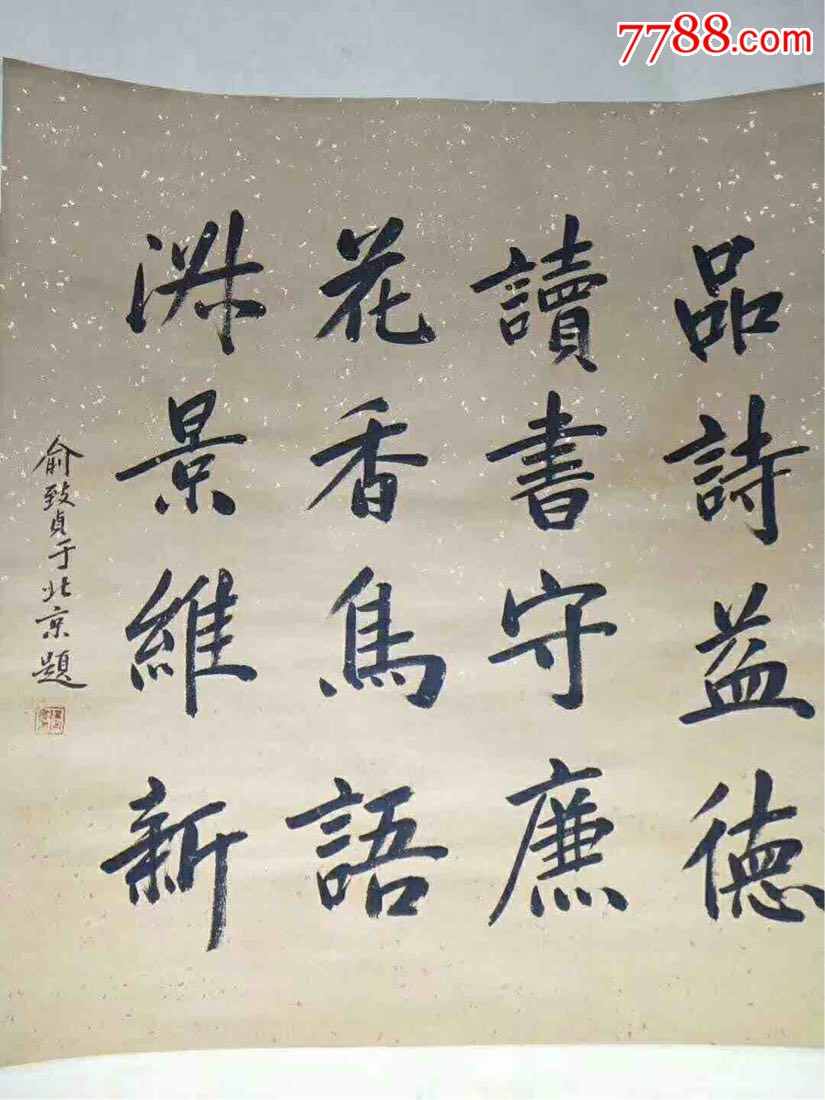 7788.com
品詩益徳
讀書守廉
花香鳥語
淑景維新
俞致貞于北京題